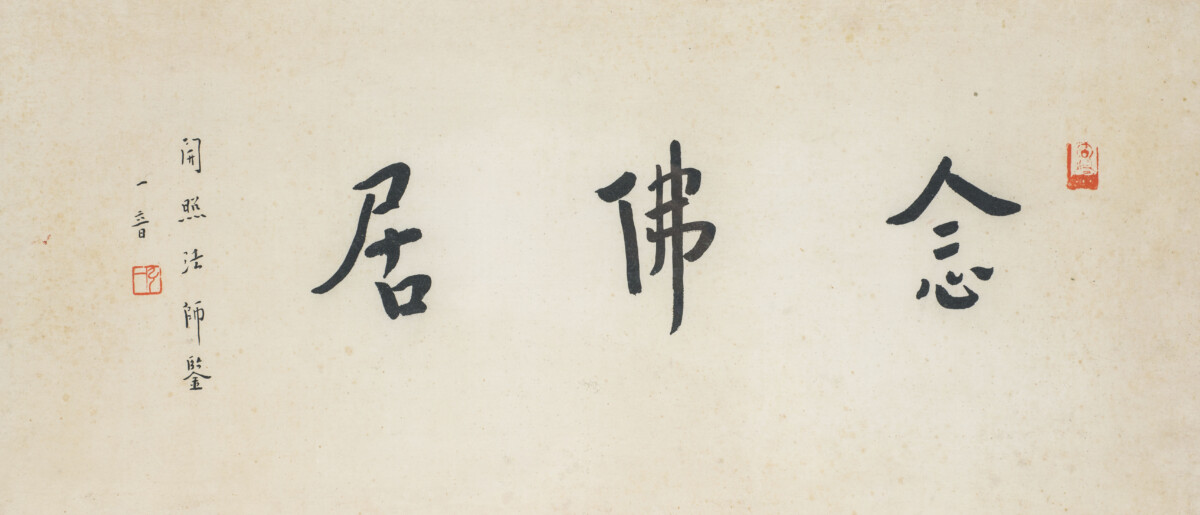 念佛居
開照法師鑒
一音